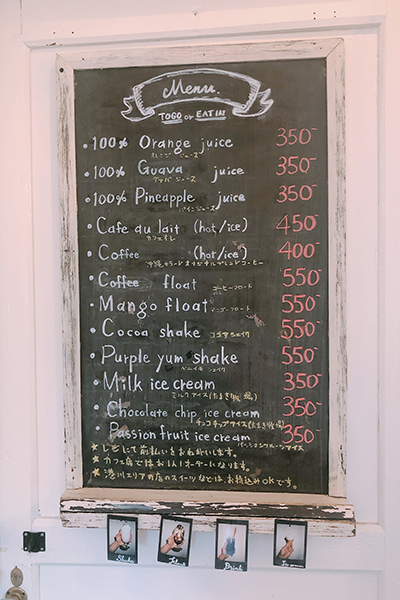 Menu.
TOGO or EAT IN
• 100% Orange juice 350-
オレンジジュース
• 100% Guava juice 350-
グァバジュース
• 100% Pineapple juice 350-
パインジュース
• Cafe au lait (hot/ice) 450-
カフェオレ
• Coffee (hot/ice) 400-
• Coffee float 550-
コーヒーフロート
• Mango float 550-
マンゴーフロート
• Cocoa shake 550-
ココアシェイク
• Purple yum shake 550-
ベニイモシェイク
• Milk ice cream 350-
ミルクアイス
• Chocolate chip ice cream 350-
チョコチップアイス
• Passion fruit ice cream 350-
パッションフルーツアイス
★レジにて前払いをお願いします。
★カフェ席ではお1人1オーダーになります。
★港川エリアの店のスイーツなどは、お持込みOKです。
Shake
Float
Drink
Ice cream